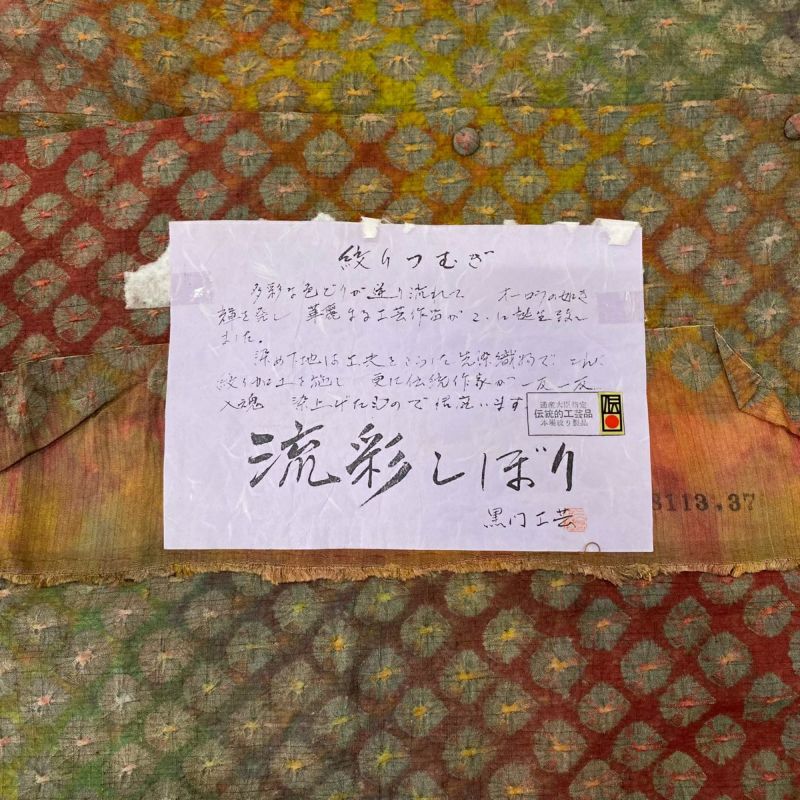 絞りつむぎ
多彩な色どりが造り流れて オーロラの如き
輝を発し 華麗なる工芸作品が ここに誕生致し
ました。
染め下地は工夫をこらした先染織物で これに
絞り加工を施し 更に伝統作家が一反一反
入魂 染上げたもので御座います
通産大臣指定
伝統的工芸品
本場絞り製品
伝
流彩しぼり
黒門工芸
8113.37